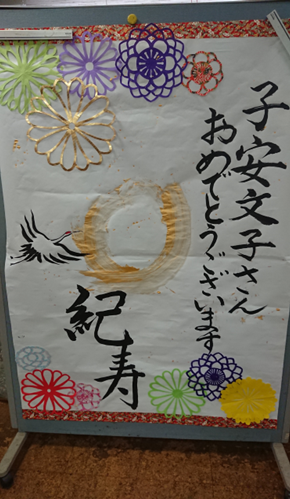 子安文子さん
おめでとうございます
紀寿